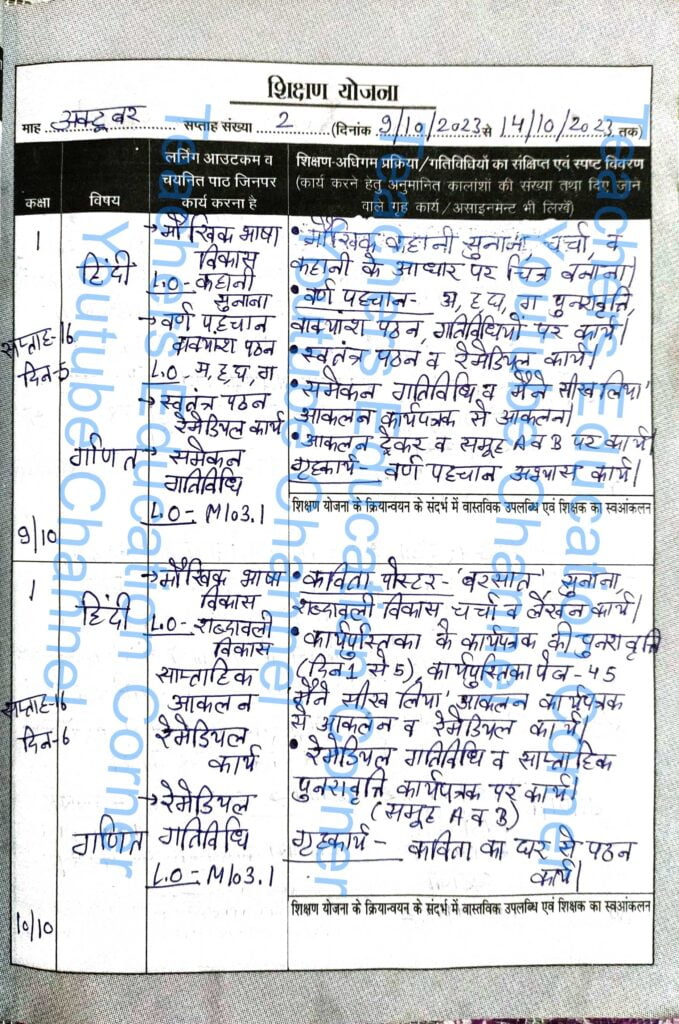 शिक्षण योजना
माह अक्टूबर सप्ताह संख्या 2 (दिनांक 9/10/2023 से 14/10/2023 तक)
कक्षा
विषय
लर्निंग आउटकम व
चयनित पाठ जिनपर
कार्य करना है
शिक्षण-अधिगम प्रकिया/गतिविधियों का संक्षिप्त एवं स्पष्ट विवरण
(कार्य करने हेतु अनुमानित कालांशों की संख्या तथा दिए जाने
वाले गृह कार्य/असाइनमेन्ट भी लिखें)
1
हिंदी
सप्ताह-16
दिन-5
गणित
9/10
→मौखिक भाषा
विकास
L.O- कहानी
सुनाना
→वर्ण पहचान
वाक्यांश पठन
L.O- अ,ह,घ,ग
→स्वतंत्र पठन
रेमेडियल कार्य
→ समेकन
गतिविधि
L.O- M103.1
•मौखिक कहानी सुनाना, चर्चा, व
कहानी के आधार पर चित्र बनाना।
•वर्ण पहचान- अ,ह,घ,ग पुनरावृत्ति,
वाक्यांश पठन, गतिविधियों पर कार्य।
•स्वतंत्र पठन व रेमेडियल कार्य।
•समेकन गतिविधि व 'मैंने सीख लिया'
आकलन कार्यपत्रक से आकलन।
•आकलन ट्रैकर व समूह A व B पर कार्य।
गृहकार्य- वर्ण पहचान अभ्यास कार्य।
शिक्षण योजना के क्रियान्वयन के संदर्भ में वास्तविक उपलब्धि एवं शिक्षक का स्वआंकलन
1
हिंदी
सप्ताह-16
दिन-6
गणित
10/10
→मौखिक भाषा
विकास
L.O- शब्दावली
विकास
साप्ताहिक
आकलन
रेमेडियल
कार्य
→रेमेडियल
गतिविधि
L.O- M103.1
•कविता पोस्टर- 'बरसात' सुनाना
शब्दावली विकास चर्चा व लेखन कार्य।
•कार्यपुस्तिका के कार्यपत्रक की पुनरावृत्ति
(दिन 1 से 5), कार्यपुस्तिका पेज-45
'मैंने सीख लिया' आकलन कार्यपत्रक
से आकलन व रेमेडियल कार्य।
•रेमेडियल गतिविधि व साप्ताहिक
पुनरावृत्ति कार्यपत्रक पर कार्य।
(समूह A व B)
गृहकार्य- कविता का घर से पठन
कार्य।
शिक्षण योजना के क्रियान्वयन के संदर्भ में वास्तविक उपलब्धि एवं शिक्षक का स्वआंकलन
Teachers Education Corner
Youtube Channel
Teachers Education Corner
Youtube Channel